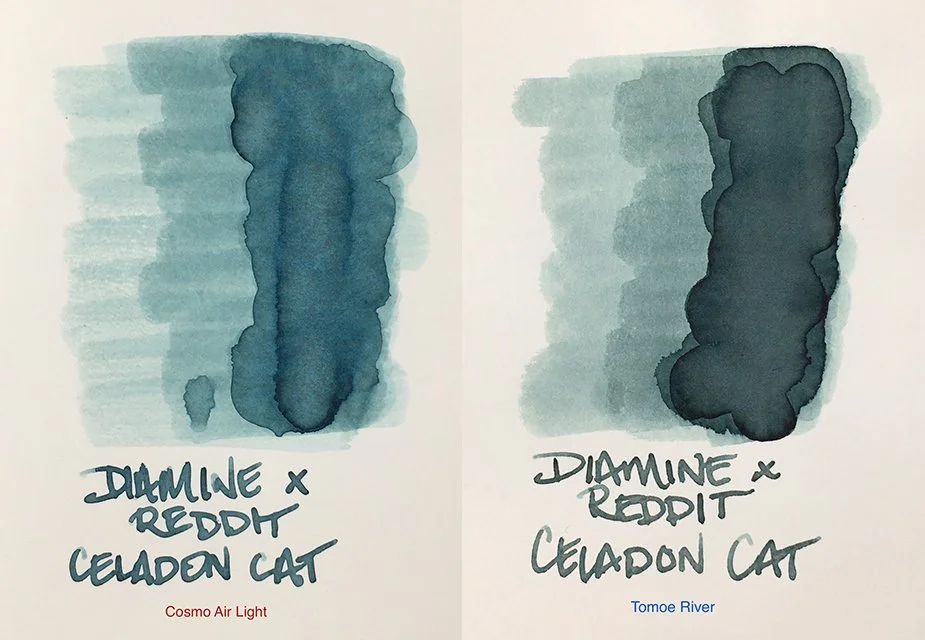 DIAMINE x
REDDIT
CELADON CAT
Cosmo Air Light
DIAMINE x
REDDIT
CELADON CAT
Tomoe River